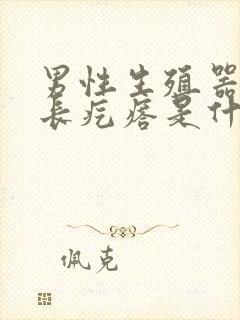 男性生殖器
长疙瘩是什
佩克